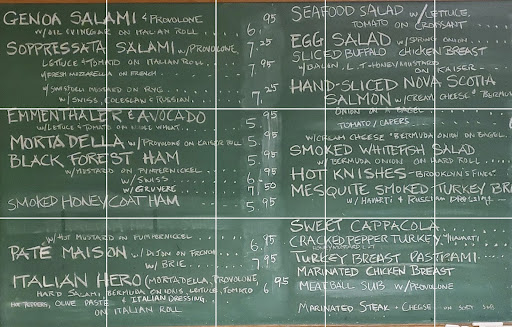 GENOA SALAMI & PROVOLONE
W/OIL & VINEGAR ON ITALIAN ROLL .... 6.95
SOPPRESSATA SALAMI W/PROVOLONE 7.25
LETTUCE & TOMATO ON ITALIAN ROLL...
W/FRESH MOZZARELLA ON FRENCH ..... 7.95
W/SWISS, COLESLAW & RUSSIAN...... 7.25
EMMENTHALER & AVOCADO
W/LETTUCE & TOMATO ON WHOLE WHEAT.... 5.95
MORTADELLA W/PROVOLONE ON KAISER ROLL 5.95
BLACK FOREST HAM
W/MUSTARD ON PUMPERNICKEL ..... 5.95
W/SWISS ...... 6.95
W/GRUYERE ...... 7.50
SMOKED HONEYCOAT HAM 5.95
W/HOT MUSTARD ON PUMPERNICKEL
PATÉ MAISON W/DIJON ON FRENCH 6.95
W/BRIE..... 7.95
ITALIAN HERO (MORTADELLA, PROVOLONE,
HARD SALAMI, BERMUDA ONIONS, LETTUCE, TOMATO 6.95
HOT PEPPERS, OLIVE PASTE & ITALIAN DRESSING
ON ITALIAN ROLL
SEAFOOD SALAD W/LETTUCE
TOMATO ON CROISSANT
EGG SALAD W/SPRING ONION
SLICED BUFFALO CHICKEN BREAST
ON KAISER
HAND-SLICED NOVA SCOTIA
SALMON W/CREAM CHEESE & BERMUDA
ONION ON BAGEL
TOMATO/CAPERS
W/CREAM CHEESE & BERMUDA ONION ON BAGEL
SMOKED WHITEFISH SALAD
W/BERMUDA ONION ON HARD ROLL
HOT KNISHES - BROOKLYN'S FINEST
MESQUITE SMOKED TURKEY BR
W/HAVARTI & RUSSIAN DRESSING
SWEET CAPPACOLA
CRACKED PEPPER TURKEY W/HAVARTI
TURKEY BREAST PASTRAMI
MARINATED CHICKEN BREAST
MEATBALL SUB W/PROVOLONE
MARINATED STEAK & CHEESE ON SOFT SUB